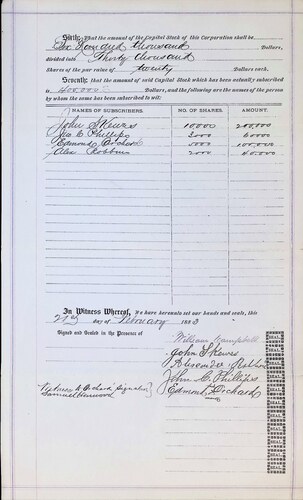 Sixth; That the amount of the Capital Stock of this Corporation shall be
Six Hundred thousand Dollars,
divided into Thirty thousand
Shares of the par value of twenty Dollars each.
Seventh; that the amount of said Capital Stock which has been actually subscribed
is 400,000 Dollars, and the following are the names of the persons
by whom the same has been subscribed to wit:
NAMES OF SUBSCRIBERS. NO. OF SHARES. AMOUNT.
John Skewes 10,000 200,000
Jno C Phillips 3000 60000
Edmond 5000 100,000
Alex Robbins 2000 40,000
In Witness Whereof, We have hereunto set our hands and seals, this
21st day of February 1883
Signed and Sealed in the Presence of
William Campbell
John Skewes
Alexander Robbins
John C. Phillips
Edmond
Samuel
SEAL.